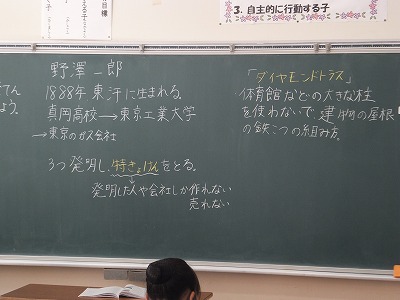 3. 自主的に行動する子
野澤一郎
1888年 東汗に生まれる。
真岡高校→東京工業大学
→東京のガス会社
3つ発明し、特きょけんをとる。
発明した人や会社しか作れない
売れない
「ダイヤモンドトラス」
体育館などの大きな柱
を使わないで建物の屋根
の鉄こつの組み方。